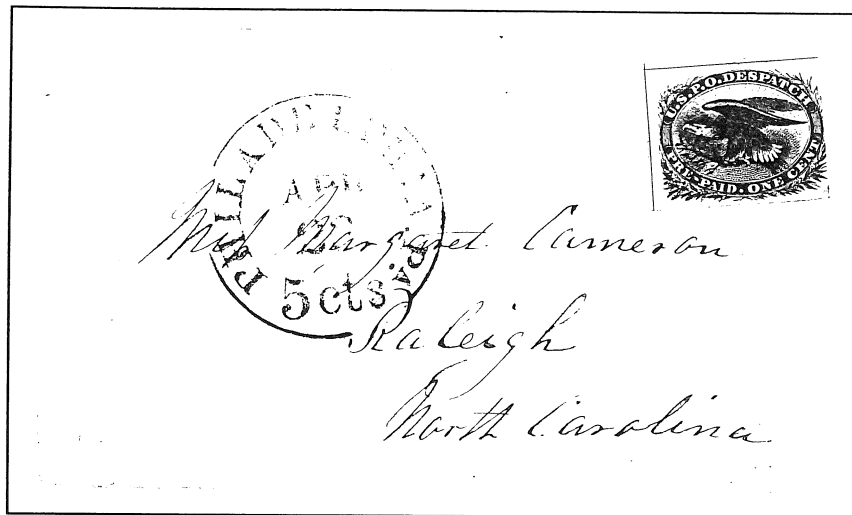 U.S.P.O. DESPATCH
PRE-PAID. ONE CENT
PHILADELPHIA Pa.
APR
5 cts
Margaret Cameron
Raleigh
North Carolina